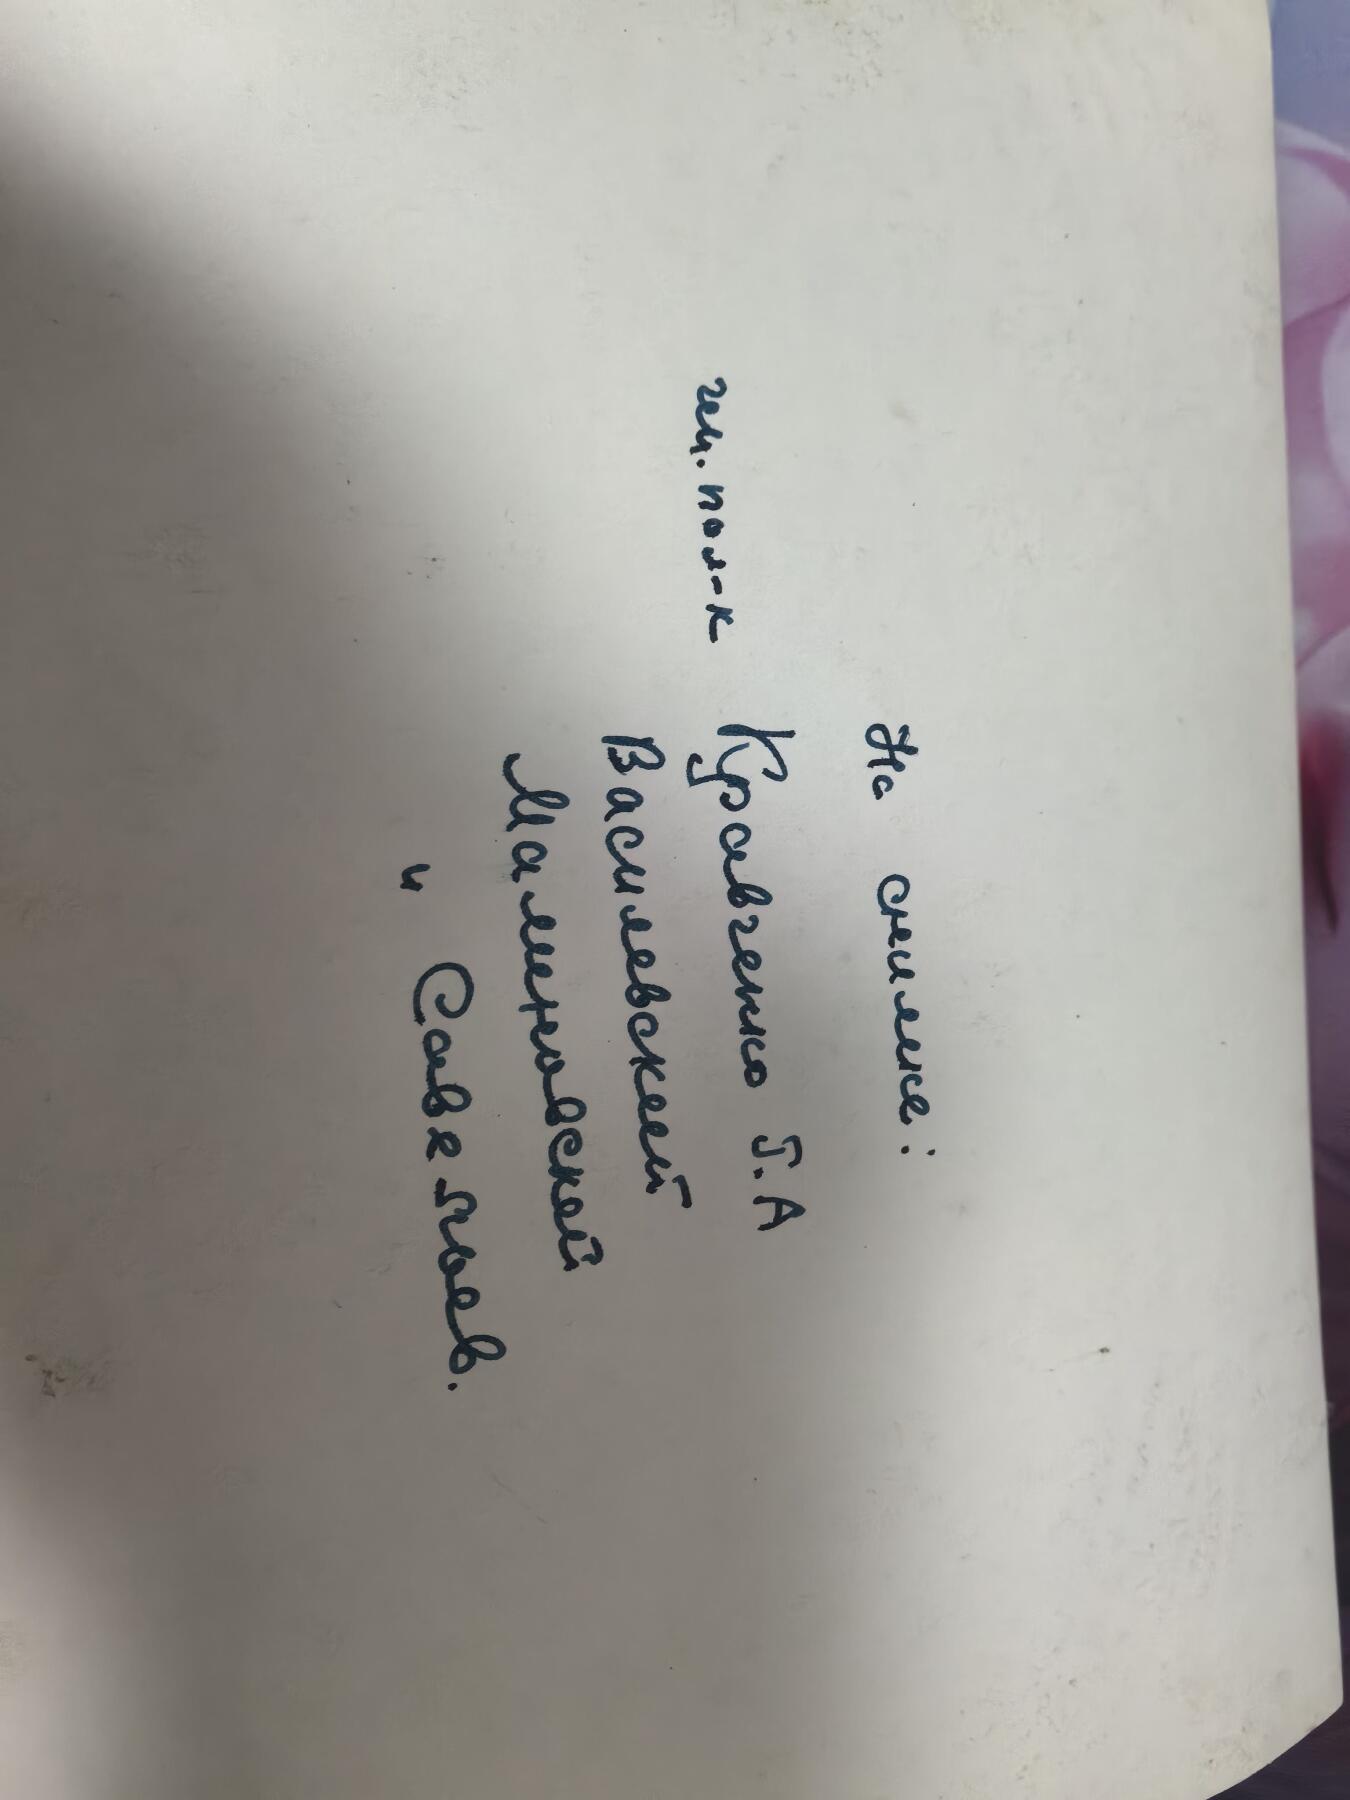 На снимке:
ген. пол-к Кравченко Г.А
Василевский
Малиновский
и Савельев.